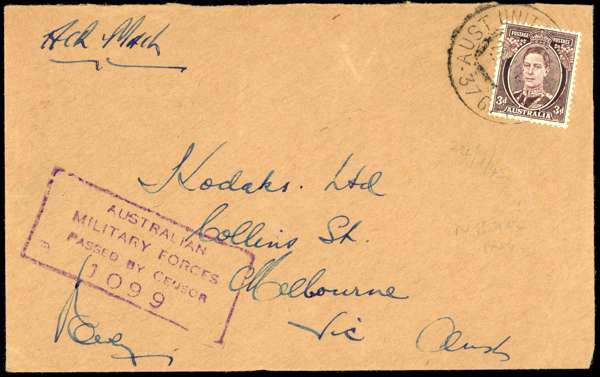 Air Mail
AUST UNIT
376
POSTAGE POSTAGE
3d 3d
AUSTRALIA
Kodaks. Ltd
Collins St.
Melbourne
Vic Aust
AUSTRALIAN
MILITARY FORCES
PASSED BY CENSOR
1099